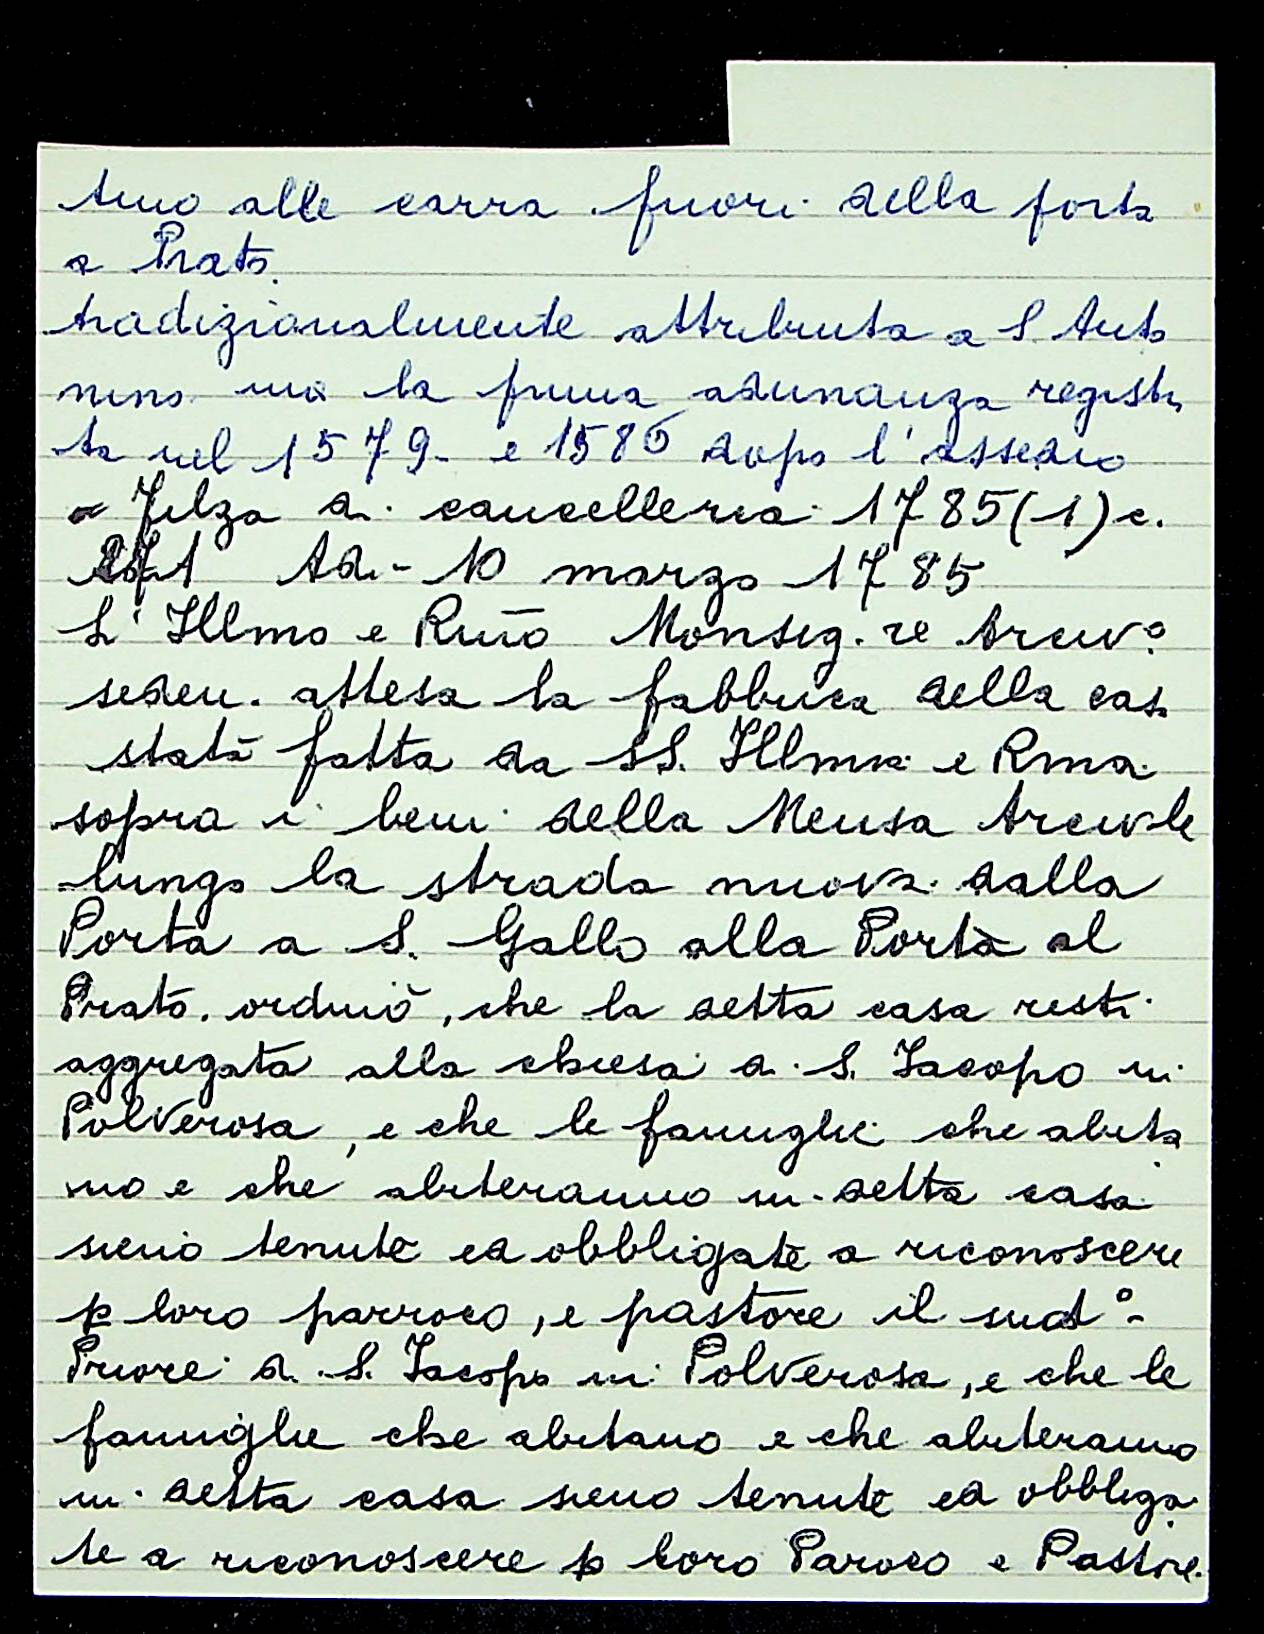 tino alle carra fuori della porta
a Prato.
tradizionalmente attribuita a S. Anto
nino ma la prima adunanza registra
ta nel 1579 - e 1580 dopo l'assedio
Filza di cancelleria 1785 (1) c.
Adi - 10 marzo 1785
L'Illmo e Rmo Monsig.re Arciv.º
seden. attesa la fabbrica della casa
stata fatta da SS. Illma e Rma
sopra i beni della Mensa Arcivle
lungo la strada nuova dalla
Porta a S. Gallo alla Porta al
Prato. ordinò, che la detta casa resti
aggregata alla chiesa di S. Iacopo in
Polverosa, e che le famiglie che abita
no e che abiteranno in detta casa
sieno tenute ed obbligate a riconoscere
p loro parroco, e pastore il sudº -
Priore di S. Iacopo in Polverosa, e che le
famiglie che abitano e che abiteranno
in detta casa sieno tenute ed obbliga
te a riconoscere p loro Paroco e Pastore.